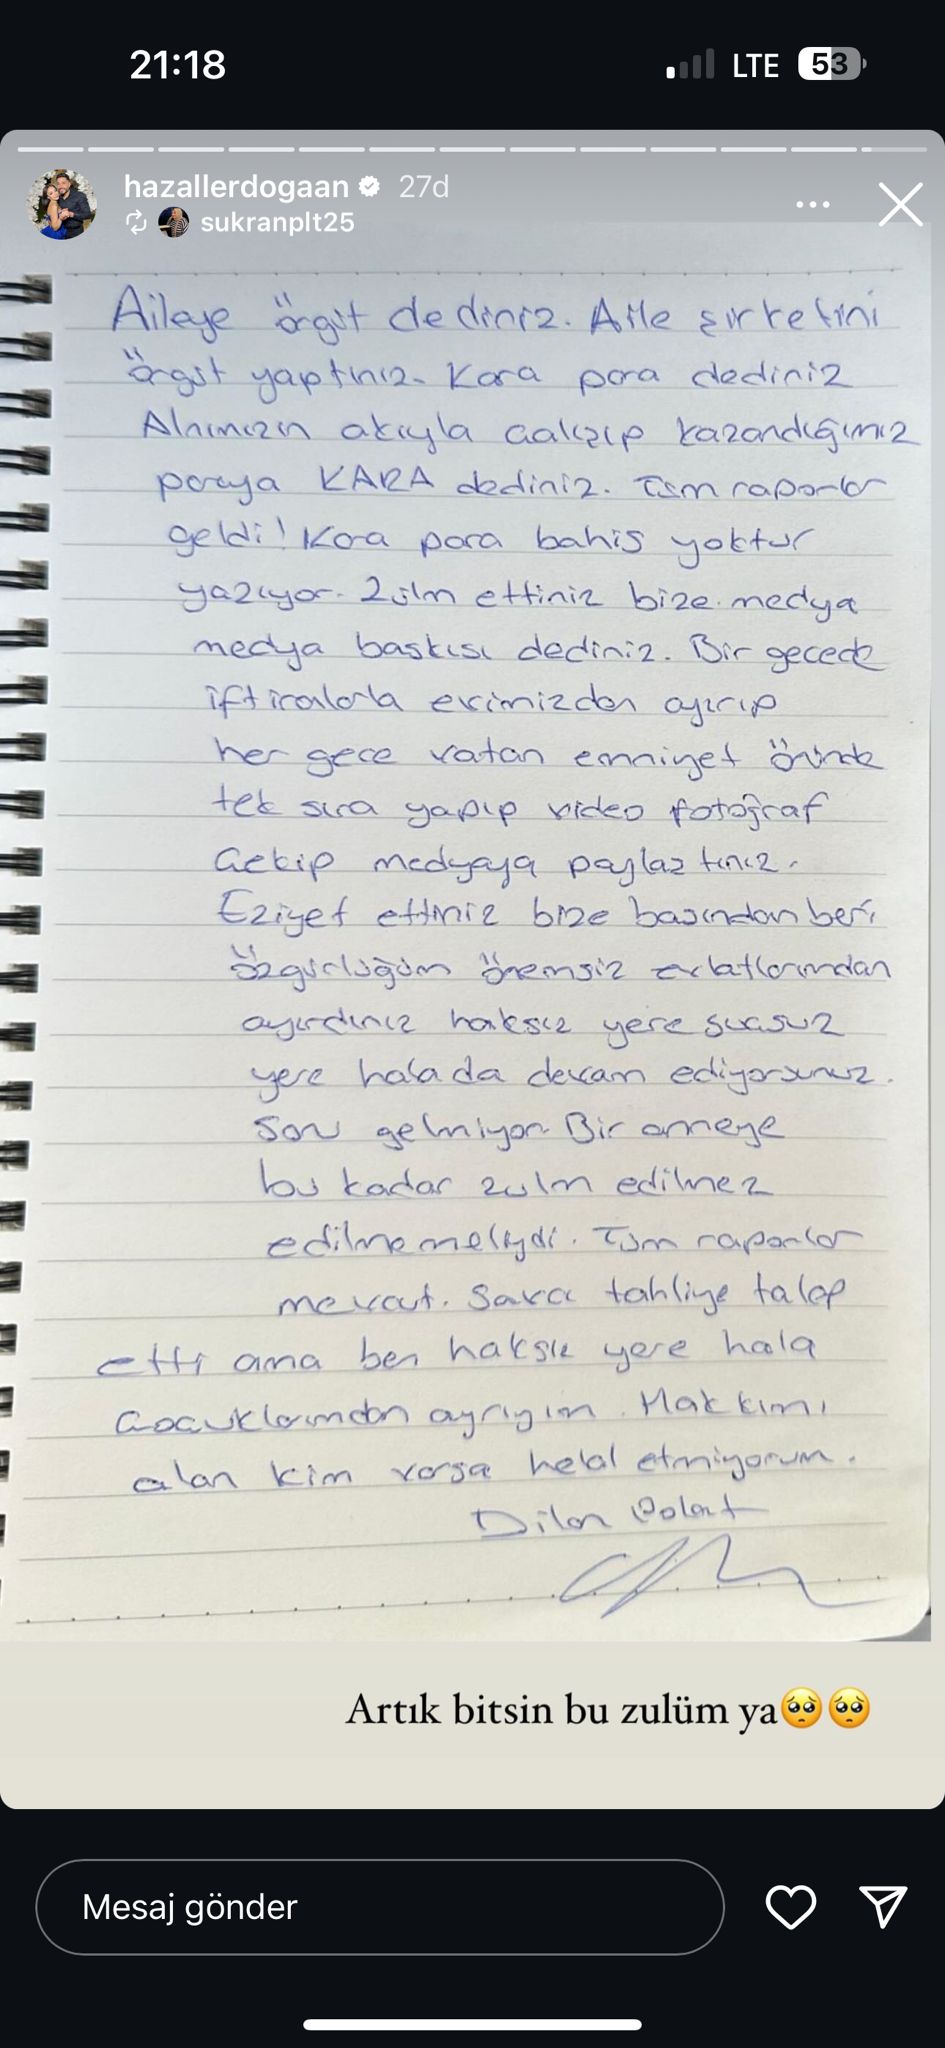 21:18
LTE 53
hazallerdogaan 27d
sukranplt25
Aileye örgüt dediniz. Aile şirketini
örgüt yaptınız. Kara para dediniz
Alnımızın akıyla çalışıp kazandığımız
paraya KARA dediniz. Tüm raporlar
geldi! Kara para bahis yoktur
yazıyor. Zülm ettiniz bize. medya
medya baskısı dediniz. Bir gecede
iftiralarla evimizden ayırıp
her gece vatan emniyet önünde
tek sıra yapıp video fotoğraf
Çekip medyaya paylaştınız.
Eziyet ettiniz bize başından beri
özgürlüğüm önemsiz evlatlarımdan
ayırdınız haksız yere suçsuz
yere hala da devam ediyorsunuz.
Sonu gelmiyor. Bir anneye
bu kadar zulm edilmez
edilmemeliydi. Tüm raporlar
mevcut. Savcı tahliye talep
etti ama ben haksız yere hala
Çocuklarımdan ayrıyım. Hakkımı
alan kim varsa helal etmiyorum.
Dilan Polat
Artık bitsin bu zulüm ya🥺🥺
Mesaj gönder